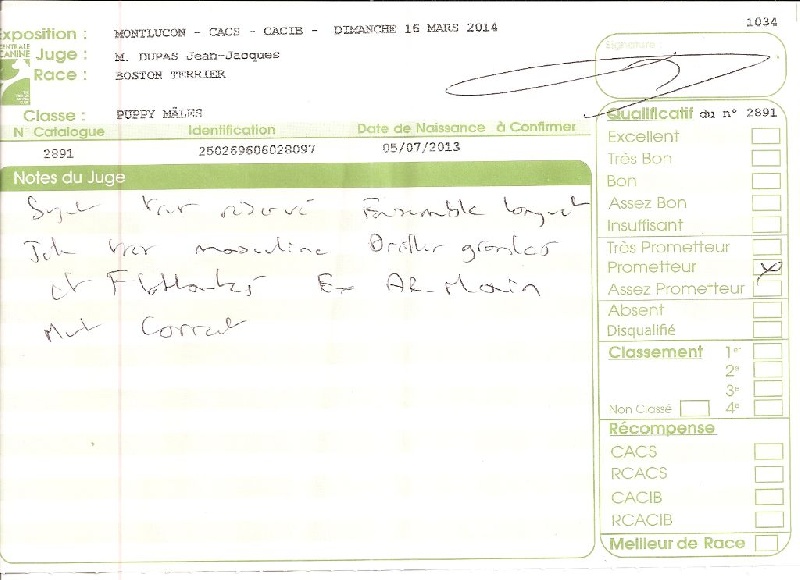 1034
xposition : MONTLUCON - CACS - CACIB - DIMANCHE 16 MARS 2014
CENTRALE
CANINE
Juge : M. DUPAS Jean-Jacques
Race : BOSTON TERRIER
Signature
Classe : PUPPY MÂLES
N° Catalogue Identification Date de Naissance à Confirmer
2891 250269606028097 05/07/2013
Notes du Juge
Sujet très réservé Ensemble longuet
Tete très masculine Oreilles grandes
et Flottantes
Mvt Correct
Qualificatif du n° 2891
Excellent
Très Bon
Bon
Assez Bon
Insuffisant
Très Prometteur
Prometteur X
Assez Prometteur
Absent
Disqualifié
Classement 1er
2e
3e
Non Classé 4e
Récompense
CACS
RCACS
CACIB
RCACIB
Meilleur de Race